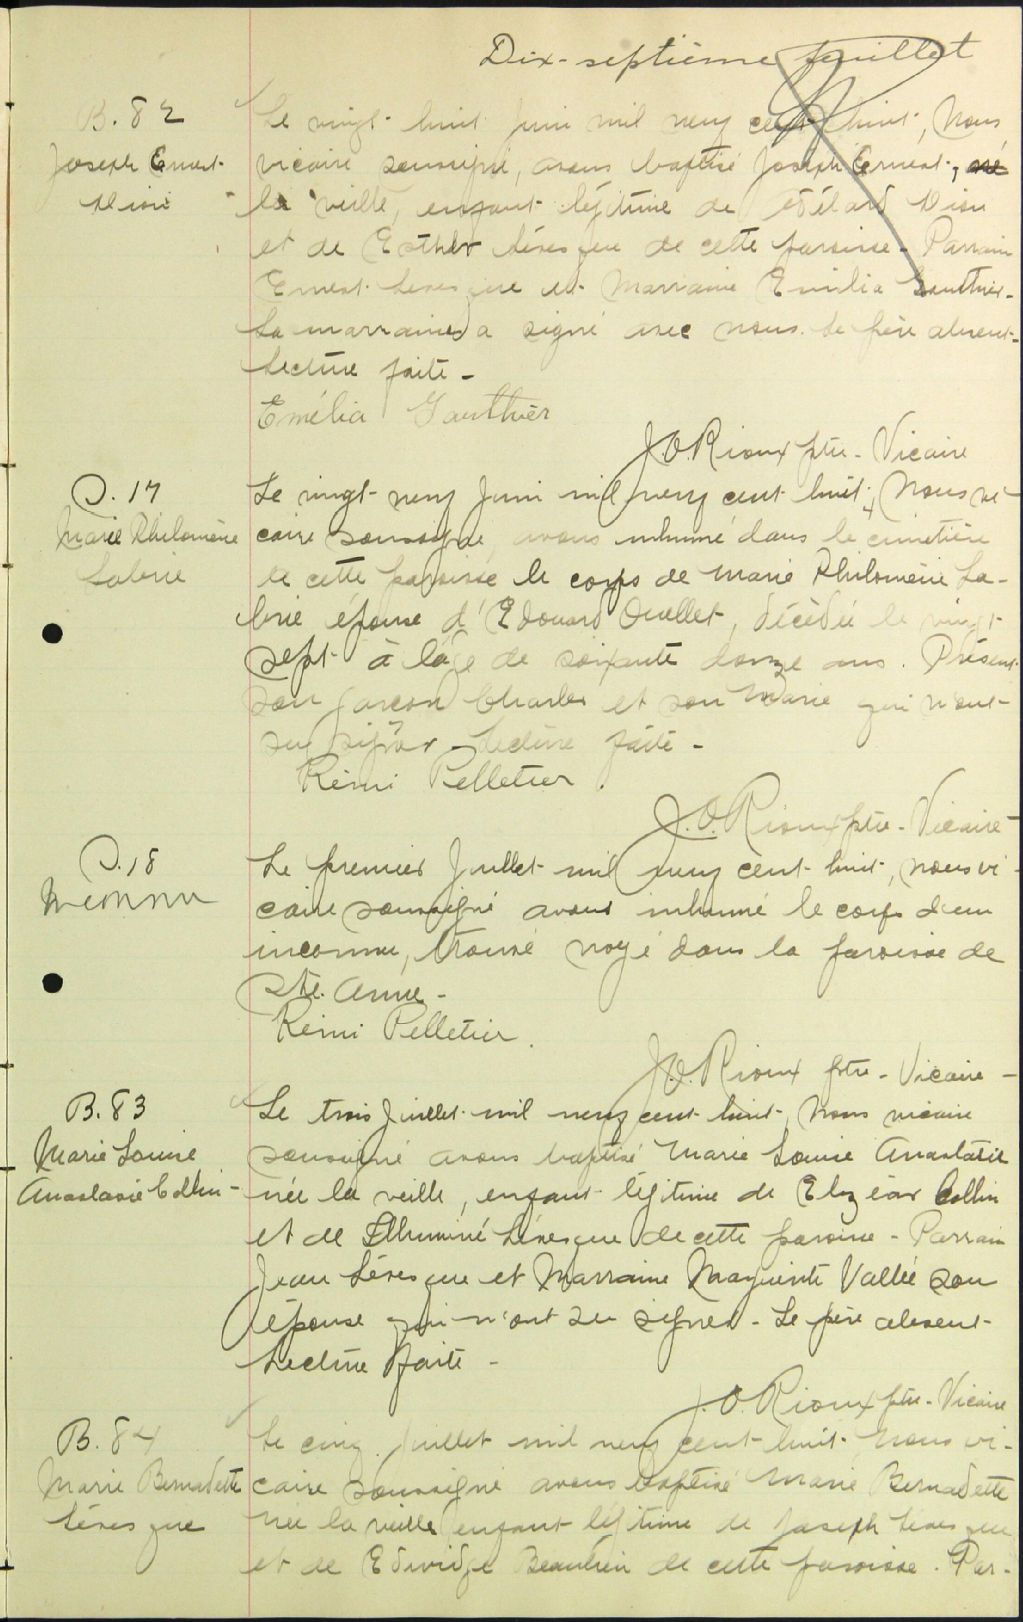 Dix-septième feuillet
B. 82
Joseph Ernest
Dion
Le vingt-huit Juin mil neuf cent huit, Nous
vicaire soussigné, avons baptisé Joseph Ernest, né
la veille, enfant légitime de Dion
et de Esther Lévesque de cette paroisse - Parrain
Ernest Levesque et Marraine Emilia Gauthier -
La marraine a signé avec nous. Le père absent -
Lecture faite -
Emélia Gauthier
J.O. Rioux ptre - Vicaire
S. 17
Marie Philomène
Labrie
Le vingt-neuf Juin mil neuf cent huit, Nous vi-
caire soussigné, avons inhumé dans le cimetière
de cette paroisse le corps de Marie Philomène La-
brie épouse d'Edouard Ouellet, décédée le vingt
sept à l'âge de soixante douze ans. Présent
son garçon Charles et son Marie qui n'ont
su signer - Lecture faite -
Rémi Pelletier
J.O. Rioux ptre - Vicaire
S. 18
Inconnu
Le premier Juillet mil neuf cent huit, nous vi-
caire soussigné avons inhumé le corps d'un
inconnu, trouvé noyé dans la paroisse de
Ste. Anne -
Rémi Pelletier.
J.O. Rioux ptre - Vicaire -
B. 83
Marie Louise
Anastasie Collin -
Le trois Juillet mil neuf cent huit, Nous vicaire
soussigné avons baptisé Marie Louise Anastasie
née la veille, enfant légitime de Elzéar Collin
et de Illuminé Lévesque de cette paroisse - Parrain
Jean Lévesque et Marraine Marguerite Vallée son
épouse qui n'ont su signer - Le père absent -
Lecture faite -
J.O. Rioux ptre - Vicaire
B. 84
Marie Bernadette
Lévesque
Le cinq Juillet mil neuf cent huit Nous vi-
caire soussigné avons baptisé Marie Bernadette
née la veille enfant légitime de Joseph Lévesque
et de Edwidge Beaulieu de cette paroisse. Par-